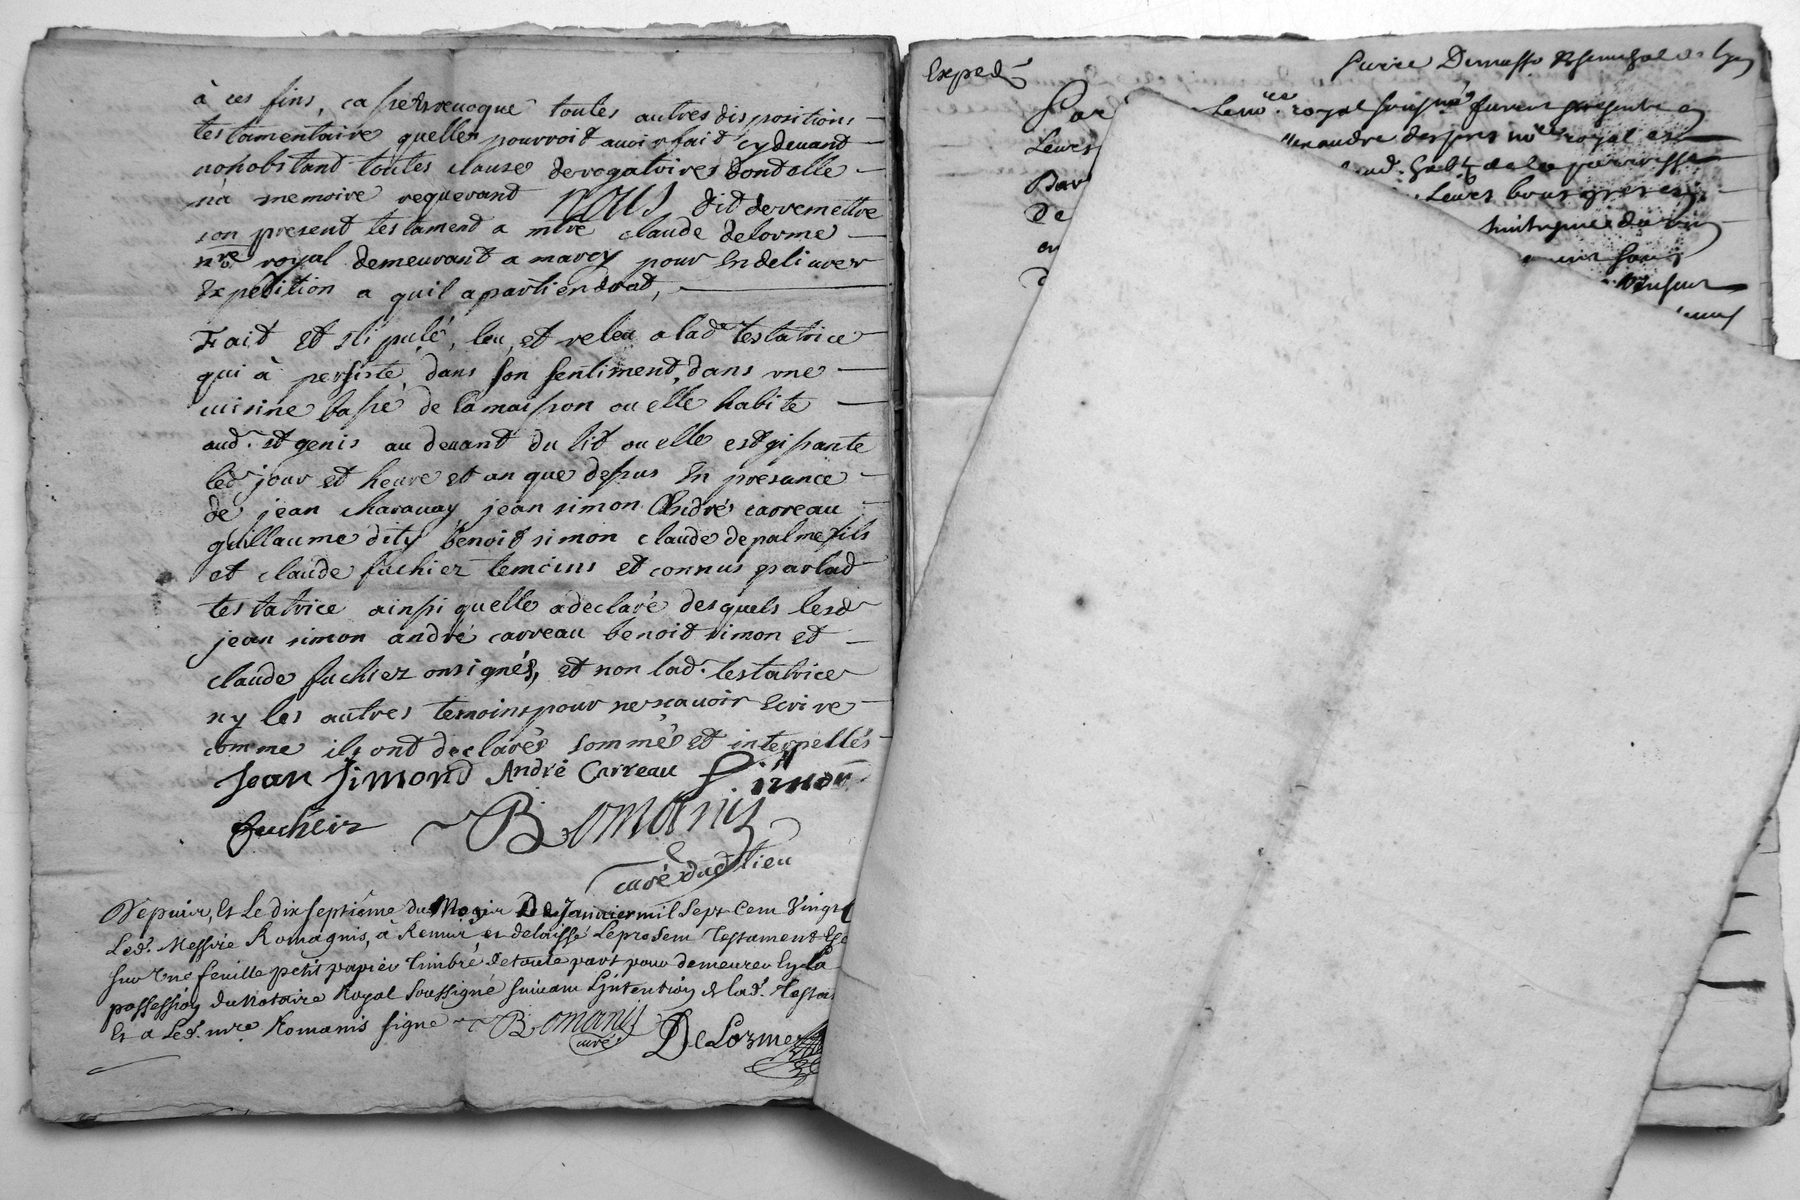 à ces fins, casse et revoque toutes autres dispositions
testamentaire quelles pourroit avoir fait cy devant
nonobstant toutes clauses derogatoires dont elle
n'a memoire requerant nous dit de remettre
son present testament a mtre claude delorme
nre royal demeurant a marcy pour en delivrer
expedition a quil apartiendrat,
Fait et stipulé, leu, et releu a lade testatrice
qui à persisté dans son sentiment, dans une
cuisine basse de la maisson ou elle habite
aud. st genis au devant du lit ou elle est gissante
led jour et heure et an que dessus en presance
de jean charavay jean simon André carreau
guillaume dity benoit simon claude depalme fils
et claude fuchiez temoins et connus par lad
testatrice ainssi quelle a declaré desquels lesd
jean simon andré carreau benoit simon et
claude fuchiez ont signés, et non lad. testatrice
ny les autres temoins pour ne scavoir ecrire
comme ils ont declarés sommés et interpellés
Jean Simond André Carreau Simon
fucheiz B Romanis
curé dud lieu
Depuis, et Le dix septiême du Mois De Janvier mil sept cent vingt
Led. Messire Romagnis, à Remis et delaissé Le present Testament
sur une feuille petit papier timbré de toute part pour demeurer en la
possession du Notaire Royal soussigné suivant L'intention de lad. Testa
Et a Led. mre Romanis signé B Romanis
curé DeLorme
Exped
Par Le nore royal soussigné furent presents
Leurs royal
Bar de la parroisse
de
en
d